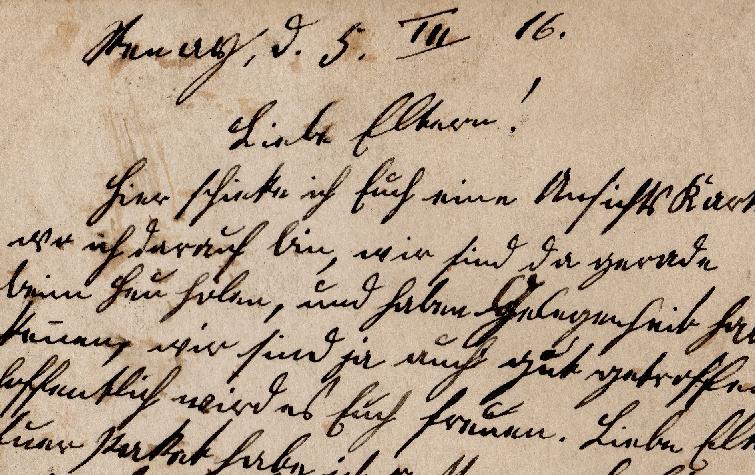 Stenay, d. 5. III 16.
Liebe Eltern!
Hier schicke ich Euch eine Ansichts Kart
wo ich darauf bin, wir sind da gerade
beim Heu holen, und haben Gelegenheit hab
können, wir sind ja auch gut getroffe
hoffentlich wird es Euch freuen. Liebe Elt
Euer Paket habe ich